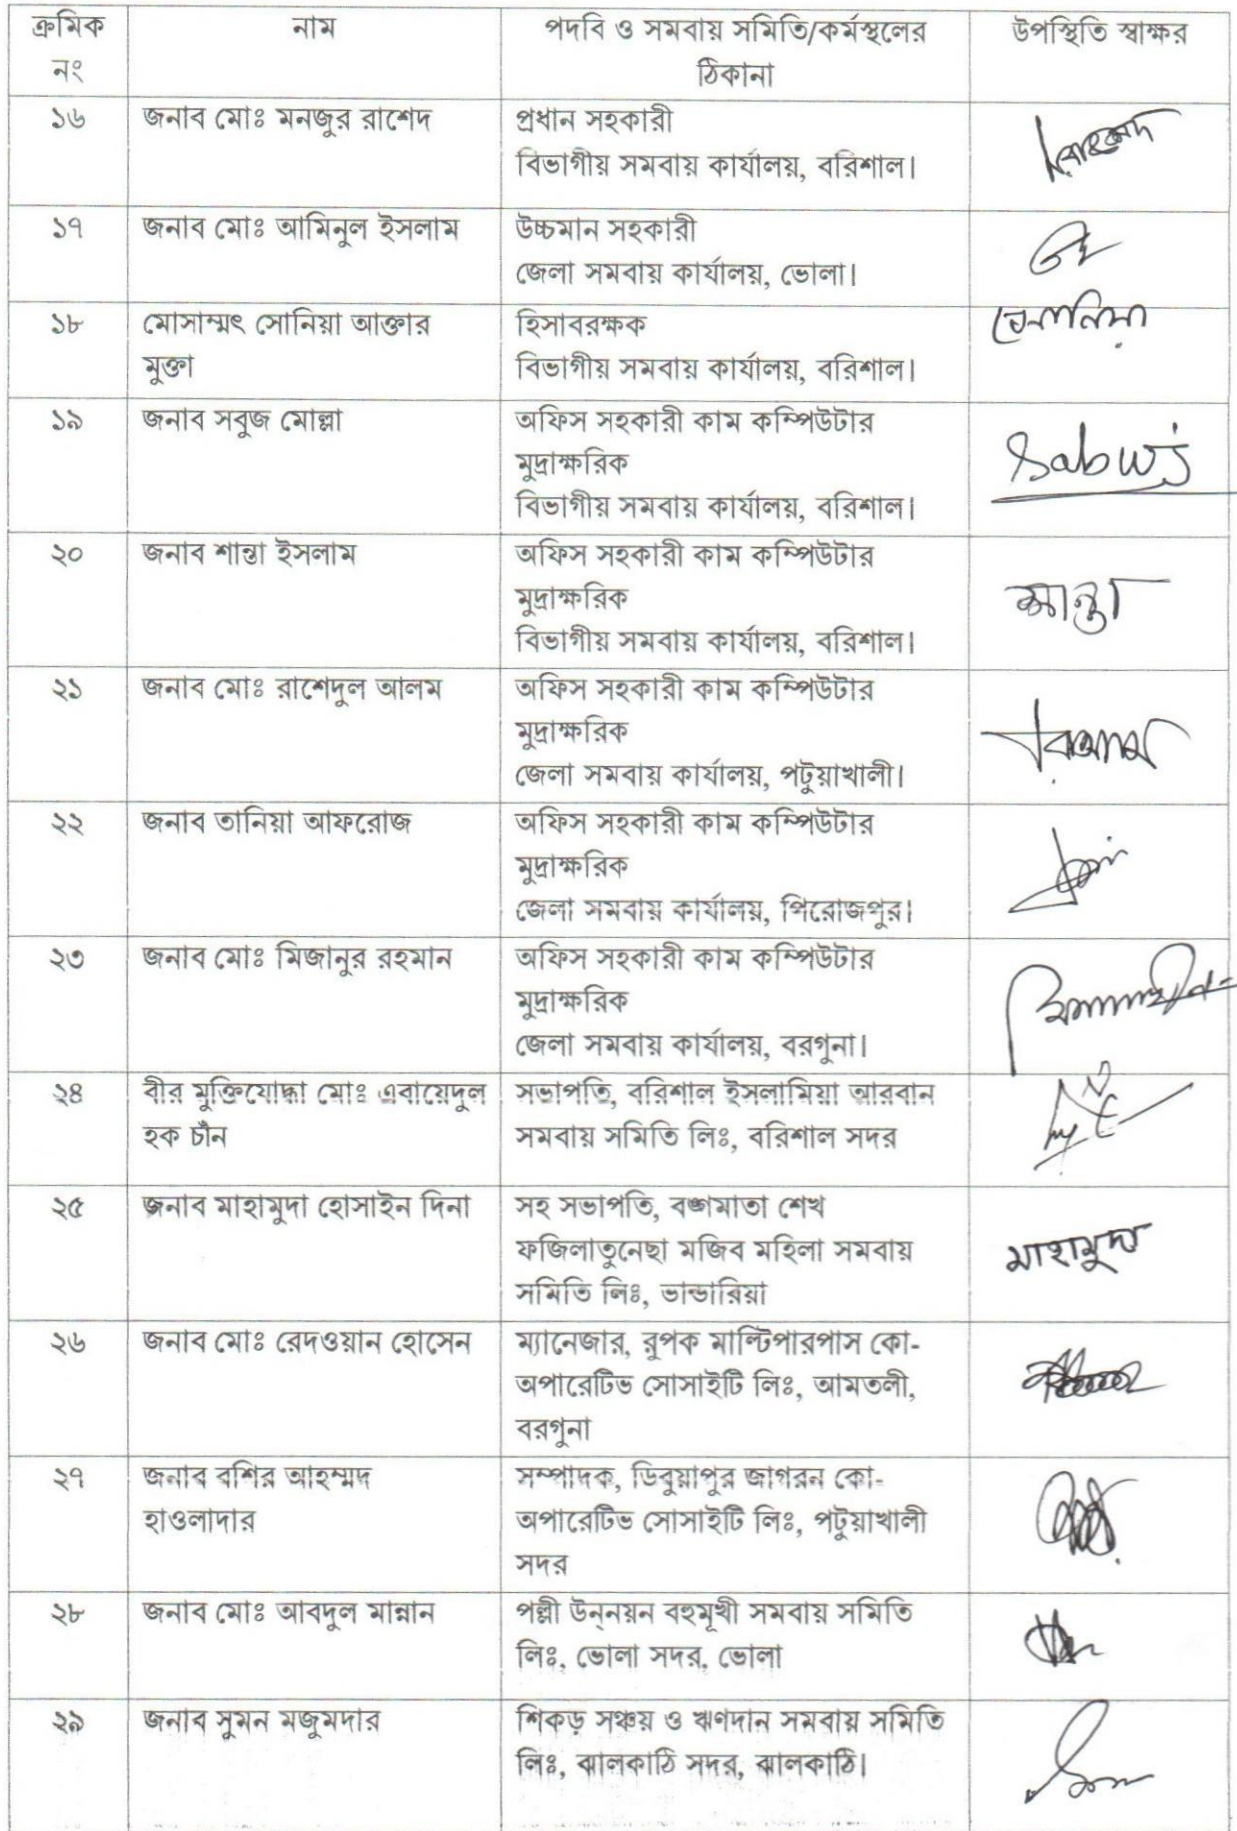 ক্রমিক নং নাম পদবি ও সমবায় সমিতি/কর্মস্থলের ঠিকানা উপস্থিতি স্বাক্ষর
১৬ জনাব মোঃ মনজুর রাশেদ প্রধান সহকারী
বিভাগীয় সমবায় কার্যালয়, বরিশাল।
১৭ জনাব মোঃ আমিনুল ইসলাম উচ্চমান সহকারী
জেলা সমবায় কার্যালয়, ভোলা।
১৮ মোসাম্মৎ সোনিয়া আক্তার হিসাবরক্ষক সোনিয়া
মুক্তা বিভাগীয় সমবায় কার্যালয়, বরিশাল।
১৯ জনাব সবুজ মোল্লা অফিস সহকারী কাম কম্পিউটার
মুদ্রাক্ষরিক Sabuj
বিভাগীয় সমবায় কার্যালয়, বরিশাল।
২০ জনাব শান্তা ইসলাম অফিস সহকারী কাম কম্পিউটার
মুদ্রাক্ষরিক শান্তা
বিভাগীয় সমবায় কার্যালয়, বরিশাল।
২১ জনাব মোঃ রাশেদুল আলম অফিস সহকারী কাম কম্পিউটার
মুদ্রাক্ষরিক
জেলা সমবায় কার্যালয়, পটুয়াখালী।
২২ জনাব তানিয়া আফরোজ অফিস সহকারী কাম কম্পিউটার
মুদ্রাক্ষরিক
জেলা সমবায় কার্যালয়, পিরোজপুর।
২৩ জনাব মোঃ মিজানুর রহমান অফিস সহকারী কাম কম্পিউটার
মুদ্রাক্ষরিক
জেলা সমবায় কার্যালয়, বরগুনা।
২৪ বীর মুক্তিযোদ্ধা মোঃ এবায়েদুল সভাপতি, বরিশাল ইসলামিয়া আরবান
হক চাঁন সমবায় সমিতি লিঃ, বরিশাল সদর
২৫ জনাব মাহামুদা হোসাইন দিনা সহ সভাপতি, বঙ্গমাতা শেখ
ফজিলাতুনেছা মজিব মহিলা সমবায় মাহামুদা
সমিতি লিঃ, ভান্ডারিয়া
২৬ জনাব মোঃ রেদওয়ান হোসেন ম্যানেজার, রুপক মাল্টিপারপাস কো-
অপারেটিভ সোসাইটি লিঃ, আমতলী,
বরগুনা
২৭ জনাব বশির আহম্মদ সম্পাদক, ডিবুয়াপুর জাগরন কো-
হাওলাদার অপারেটিভ সোসাইটি লিঃ, পটুয়াখালী
সদর
২৮ জনাব মোঃ আবদুল মান্নান পল্লী উন্নয়ন বহুমূখী সমবায় সমিতি
লিঃ, ভোলা সদর, ভোলা
২৯ জনাব সুমন মজুমদার শিকড় সঞ্চয় ও ঋণদান সমবায় সমিতি
লিঃ, ঝালকাঠি সদর, ঝালকাঠি।